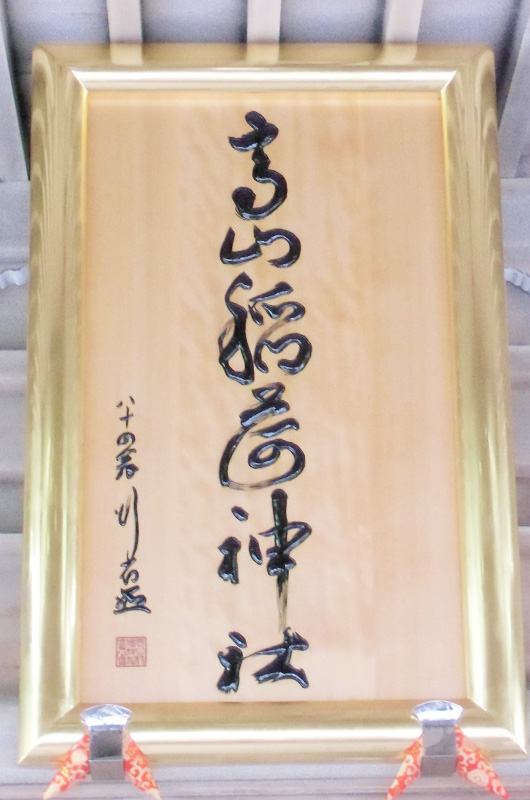 高山稲荷神社
八十四翁